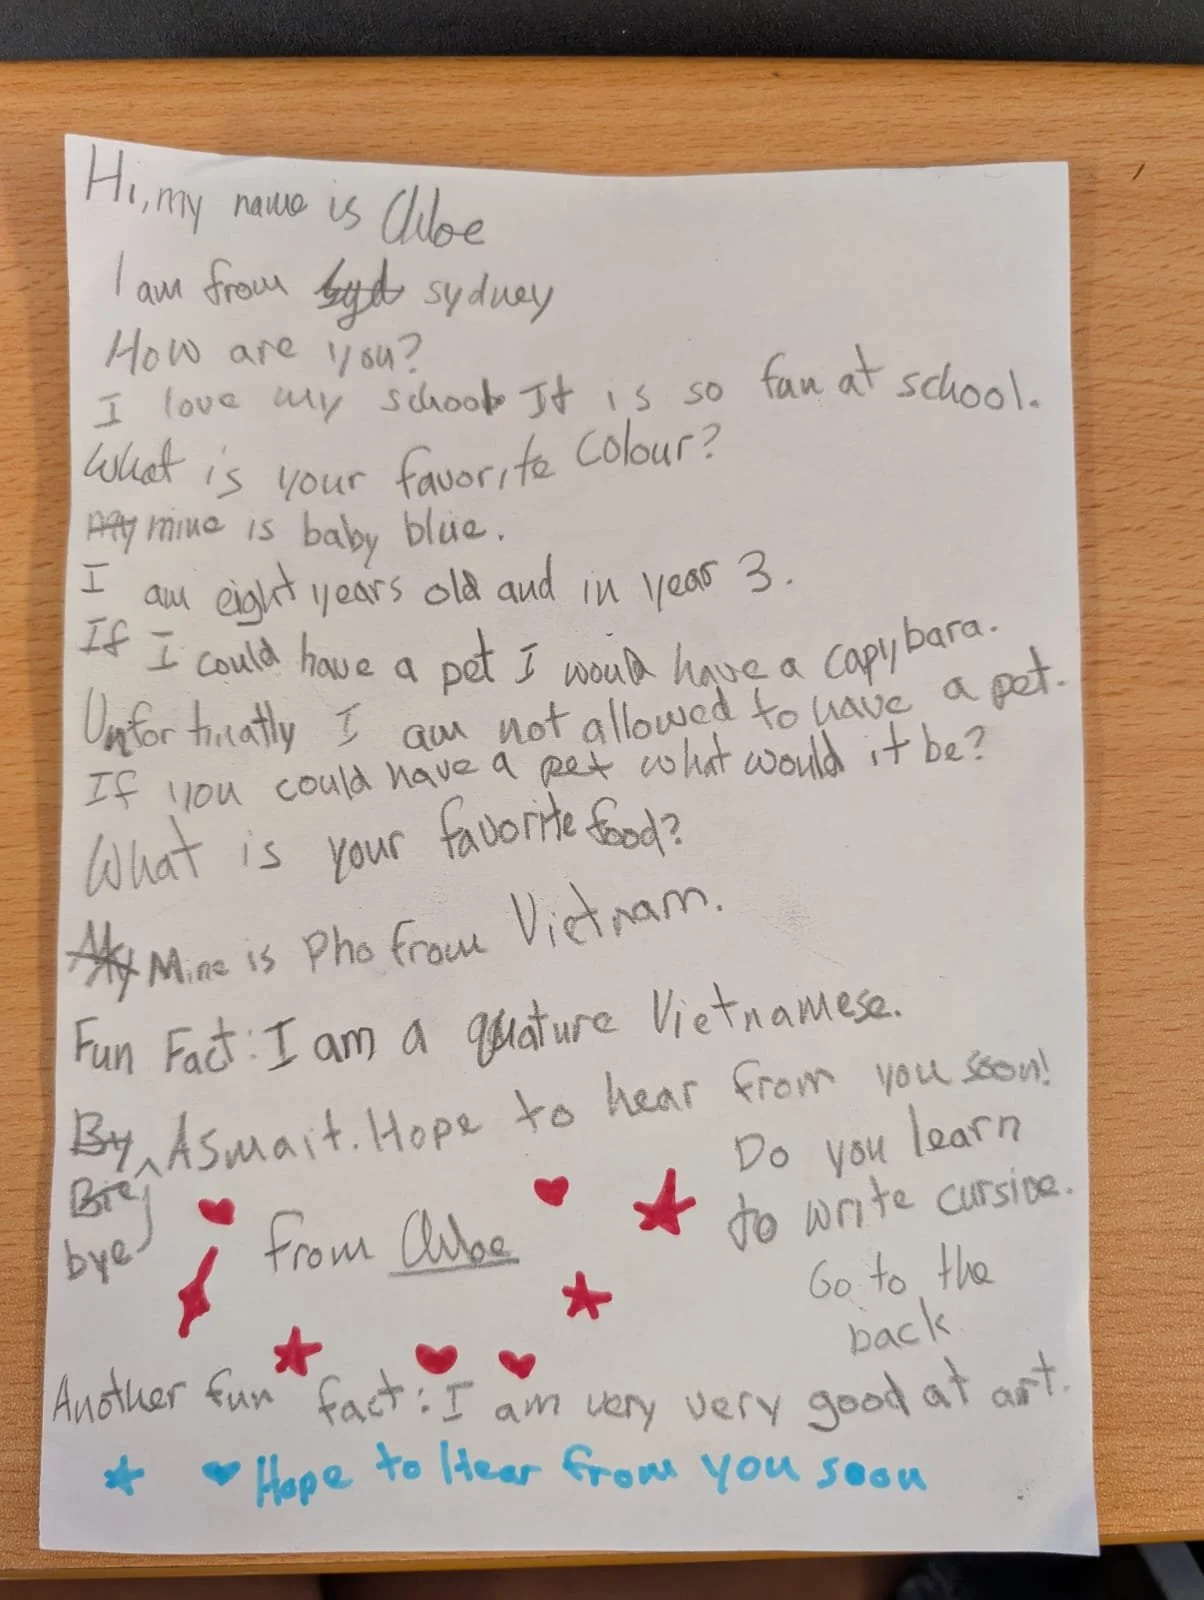 Hi, my name is Chloe
I am from syd sydney
How are you?
I love my school. It is so fun at school.
What is your favorite colour?
My mine is baby blue.
I am eight years old and in year 3.
If I could have a pet I would have a capybara.
Unfortinatly I am not allowed to have a pet.
If you could have a pet what would it be?
What is your favorite food?
My Mine is Pho from Vietnam.
Fun Fact: I am a quature Vietnamese.
By Asmait. Hope to hear from you soon!
Bie
bye
from Chloe
Do you learn
to write cursive.
Go to the
back
Another fun fact: I am very very good at art.
Hope to Hear from you soon